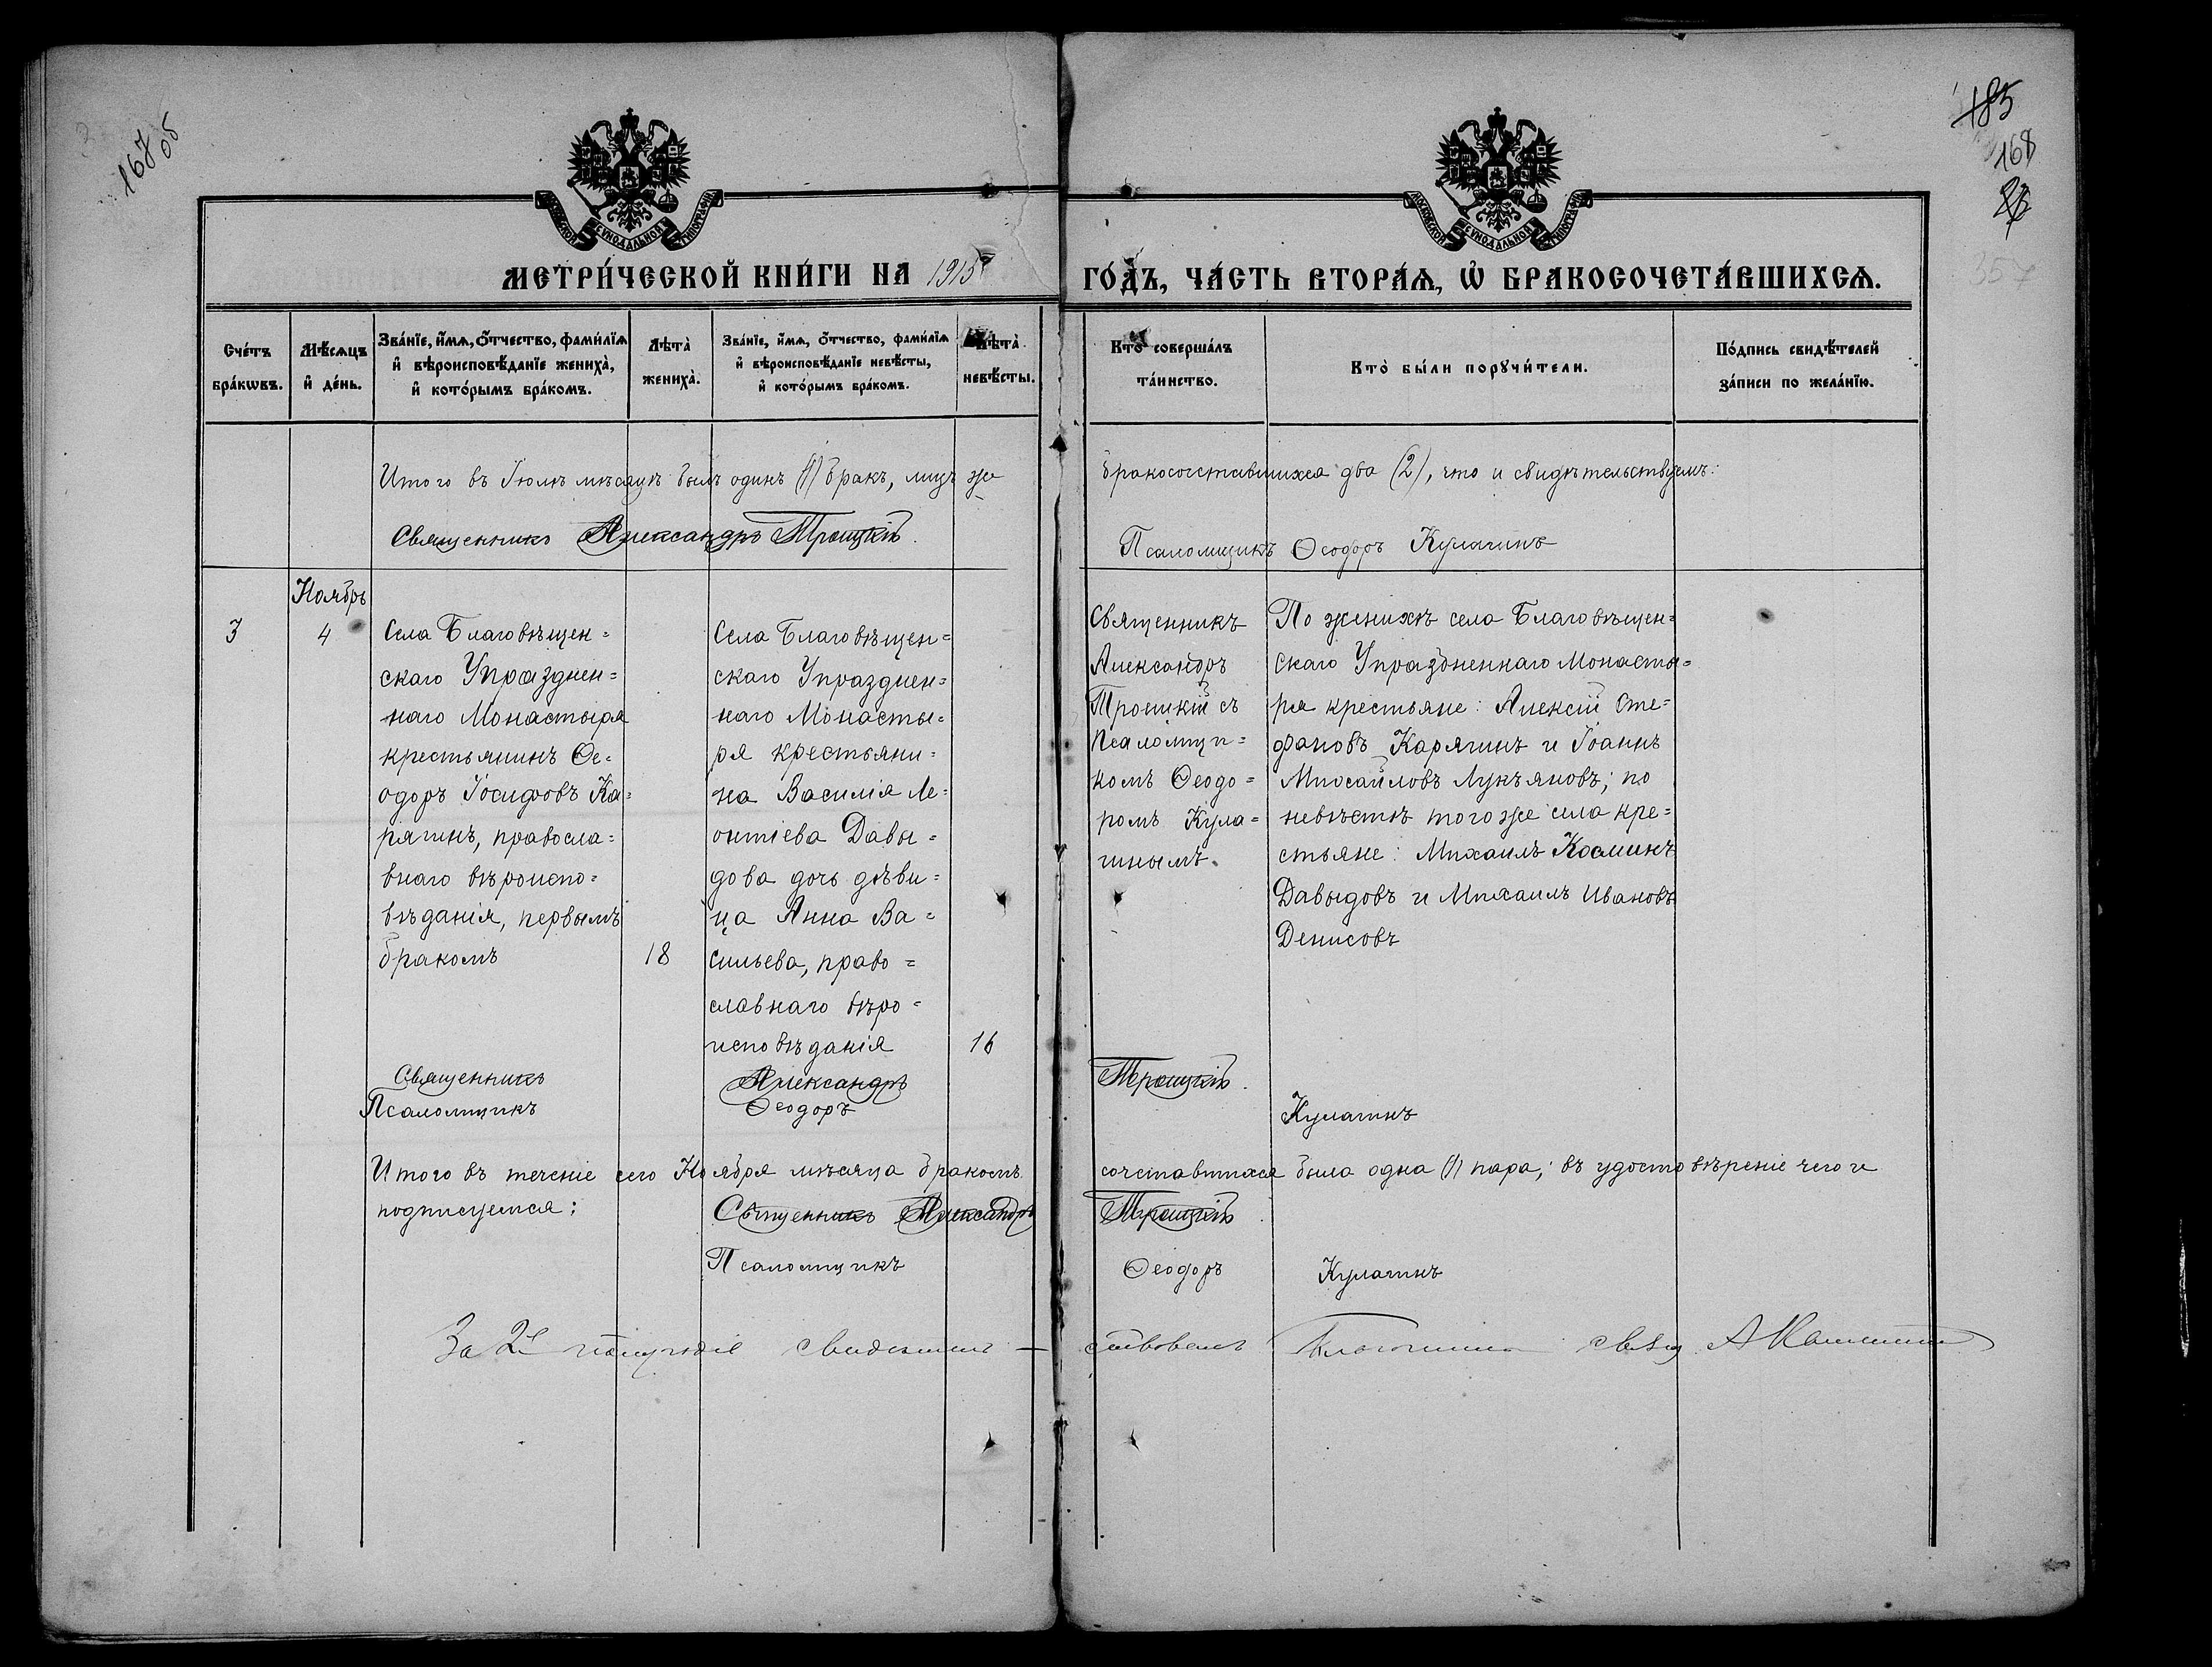 167 об
185
168
357
МОСКОВСКОЙ СѴНОДАЛЬНОЙ ТИПОГРАФІИ
МОСКОВСКОЙ СѴНОДАЛЬНОЙ ТИПОГРАФІИ
МЕТРИ́ЧЕСКОЙ КНИ́ГИ НА 1915 ГО́ДЪ, ЧА́СТЬ ВТОРА́Ѧ, Ѽ БРАКОСОЧЕТА́ВШИХСѦ.
Сче́тъ бра́кѡвъ.
Мѣ́сѧцъ и҆ де́нь.
Зва́нїе, и҆́мѧ, ѻ҆́тчество, фами́лїѧ и҆ вѣроисповѣ́данїе жениха̀, и҆ кото́рымъ бра́комъ.
Лѣта̀ жениха̀.
Зва́нїе, и҆́мѧ, ѻ҆́тчество, фами́лїѧ и҆ вѣроисповѣ́данїе невѣ́сты, и҆ кото́рымъ бра́комъ.
Лѣта̀ невѣ́сты.
Кто̀ соверша́лъ та́инство.
Кто̀ бы́ли порꙋчи́тели.
По́дпись свидѣ́телей за́писи по жела́нїю.
Итого въ Іюлѣ мѣсяцѣ былъ одинъ (1) бракъ, лицъ же бракосочетавшихся два (2), что и свидѣтельствуемъ:
Священникъ Александръ Троицкій.
Псаломщикъ Ѳеодоръ Кулагинъ
Ноябрь
3
4
Села Благовѣщен=
скаго Упразднен=
наго Монастыря
крестьянинъ Ѳе=
одоръ Іосифовъ Ка=
рягинъ, правосла=
внаго вѣроиспо=
вѣданія, первымъ
бракомъ
18
Села Благовѣщен=
скаго Упразднен=
наго Монасты=
ря крестьяни=
на Василія Ле=
онтіева Давы=
дова дочь дѣви=
ца Анна Ва=
сильева, право=
славнаго вѣро=
исповѣданія
16
Священникъ
Александръ
Троицкій съ
псаломщи=
комъ Ѳеодо=
ромъ Кула=
гинымъ.
По женихѣ села Благовѣщен=
скаго Упраздненнаго Монасты=
ря крестьяне: Алексій Сте=
фановъ Карягинъ и Іоаннъ
Мисаиловъ Лукъяновъ; по
невѣстѣ того же села кре=
стьяне: Михаилъ Косминъ
Давыдовъ и Михаилъ Ивановъ
Денисовъ
Священникъ Александръ Троицкій.
Псаломщикъ Ѳеодоръ Кулагинъ
Итого въ теченіе сего Ноября мѣсяца бракомъ сочетавшихся была одна (1) пара; въ удостовѣреніе чего и
подписуемся: Священникъ Александръ Троицкій
Псаломщикъ Ѳеодоръ Кулагинъ
За 2е полугодіе свидѣтель-ствовалъ Благочинный свящ. А